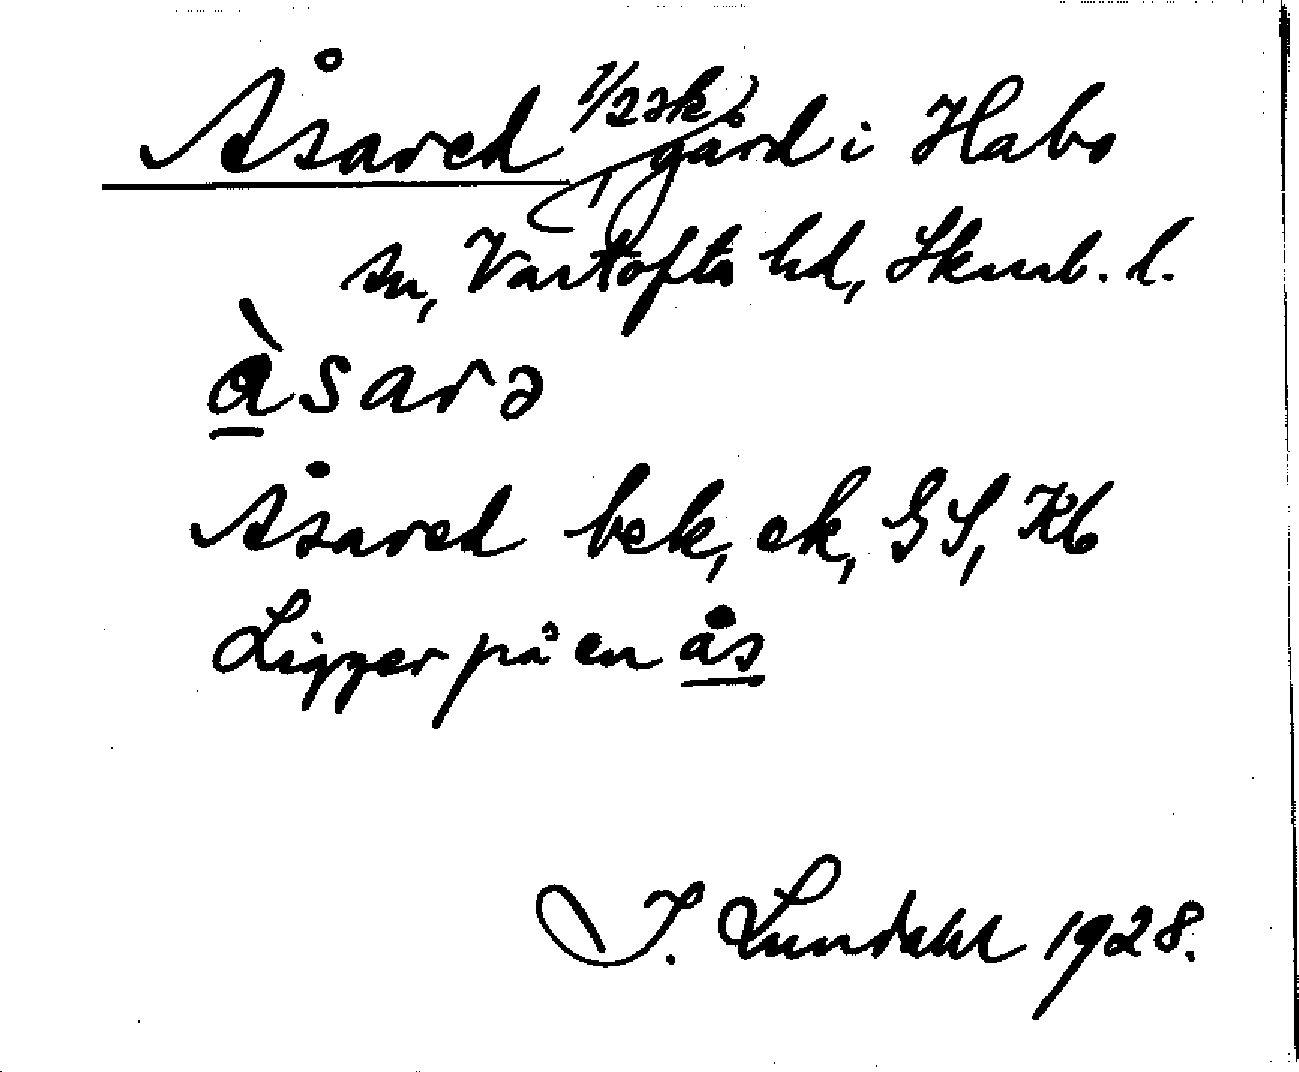 Åsared 1/2 sk gård i Habo
sn, Vartofta hd, Skarab. l.
àsarə
Åsared bek, ek, GS, Kb
Ligger på en ås
I. Lundahl 1928.